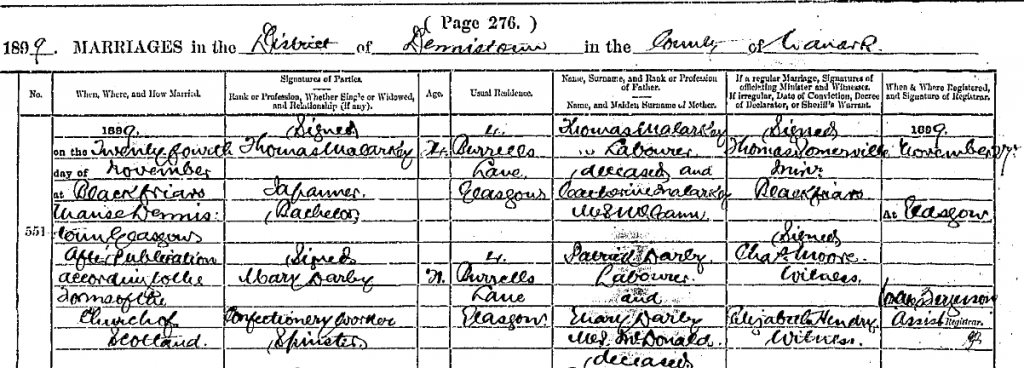 ( Page 276. )
1899. MARRIAGES in the District of Dennistoun in the County of Lanark.
No.
When, Where, and How Married.
Signatures of Parties.
Rank or Profession, Whether Single or Widowed, and Relationship (if any).
Age.
Usual Residence.
Name, Surname, and Rank or Profession of Father.
Name, and Maiden Surname of Mother.
If a regular Marriage, Signatures of officiating Minister and Witnesses.
If irregular, Date of Conviction, Decree of Declarator, or Sheriff's Warrant.
When & Where Registered, and Signature of Registrar.
551
1899.
on the Twenty fourth
day of November
at Blackfriars
Manse Dennis:
toun Glasgow
After Publication
according to the
Forms of the
Church of
Scotland.
(Signed)
Thomas Malarkey
Japanner
(Bachelor)
(Signed)
Mary Darby
Confectionery Worker
(Spinster)
4.
Burrells
Lane
Glasgow
4.
Burrells
Lane
Glasgow
Thomas Malarkey
Labourer
deceased and
Catherine Malarkey
M.S. McCann
Patrick Darby
Labourer
and
Mary Darby
M.S. McDonald
(deceased)
(Signed)
Thomas Somerville
Minr.
Blackfriars
(Signed)
Chas. Moore
Witness.
Elizabeth Hendry
Witness.
1899
November 27.
At Glasgow
Ferguson
Assist Registrar.